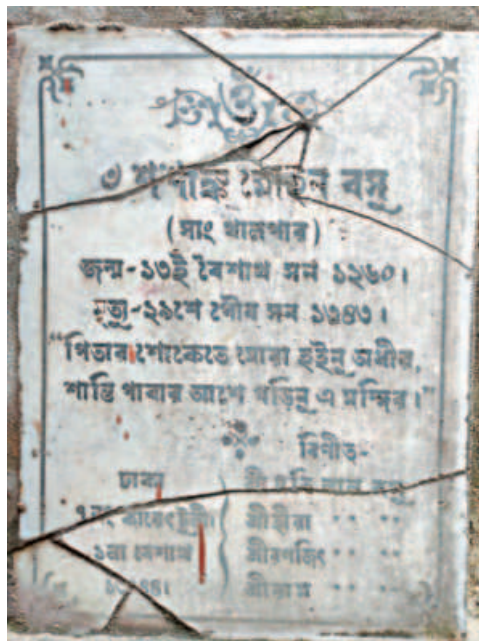 ওঁ
৺ শশাঙ্ক মোহন বসু
(সাং খালপার)
জন্ম-১৩ই বৈশাখ সন ১২৬০।
মৃত্যু-২৯শে পৌষ সন ১৩৪৩।
"পিতার শোকেতে মোরা হইনু অধীর,
শান্তি পাবার আশে গড়িনু এ মন্দির।"
বিনীত-
ঢাকা
শ্রীহীরা " "
১লা বৈশাখ শ্রীরণজিৎ " "